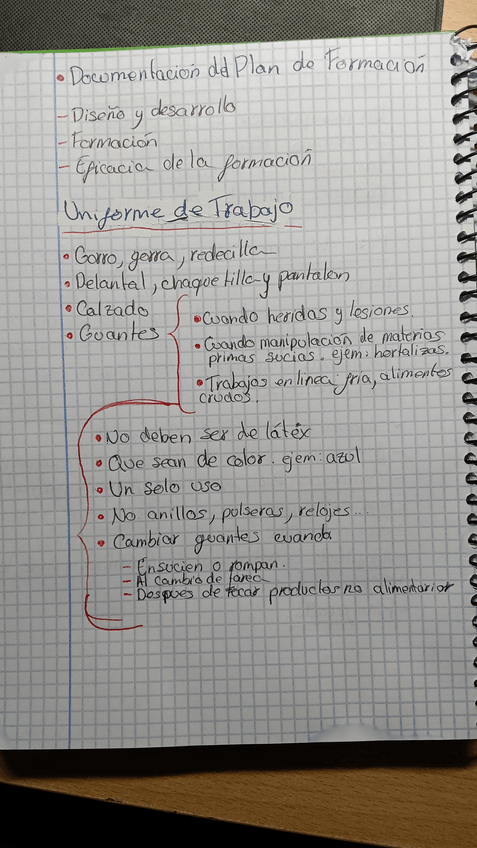 • Documentación del Plan de Formación
- Diseño y desarrollo
- Formación
- Eficacia de la formación
Uniforme de Trabajo
• Gorro, gorra, redecilla
• Delantal, chaquetilla y pantalon
• Calzado
• Guantes
• Cuando heridas y lesiones.
• Cuando manipulación de materias
primas sucias. ejem: hortalizas.
• Trabajos en linea fria, alimentos
crudos.
• No deben ser de látex
• Que sean de color. ejem: azul
• Un solo uso
• No anillos, pulseras, relojes...
• Cambiar guantes cuando
- Ensucien o rompan.
- Al cambio de tarea
- Despues de tocar productos no alimentarior